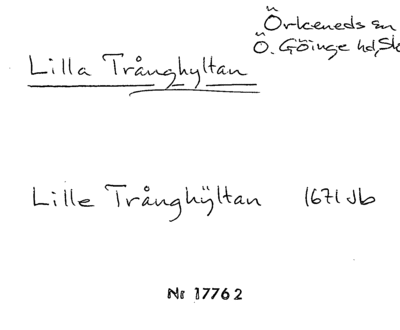 Örkeneds sn
Ö. Göinge hd, Sk
Lilla Trånghyltan
Lille Trånghÿltan 1671 Jb
Nr 17762